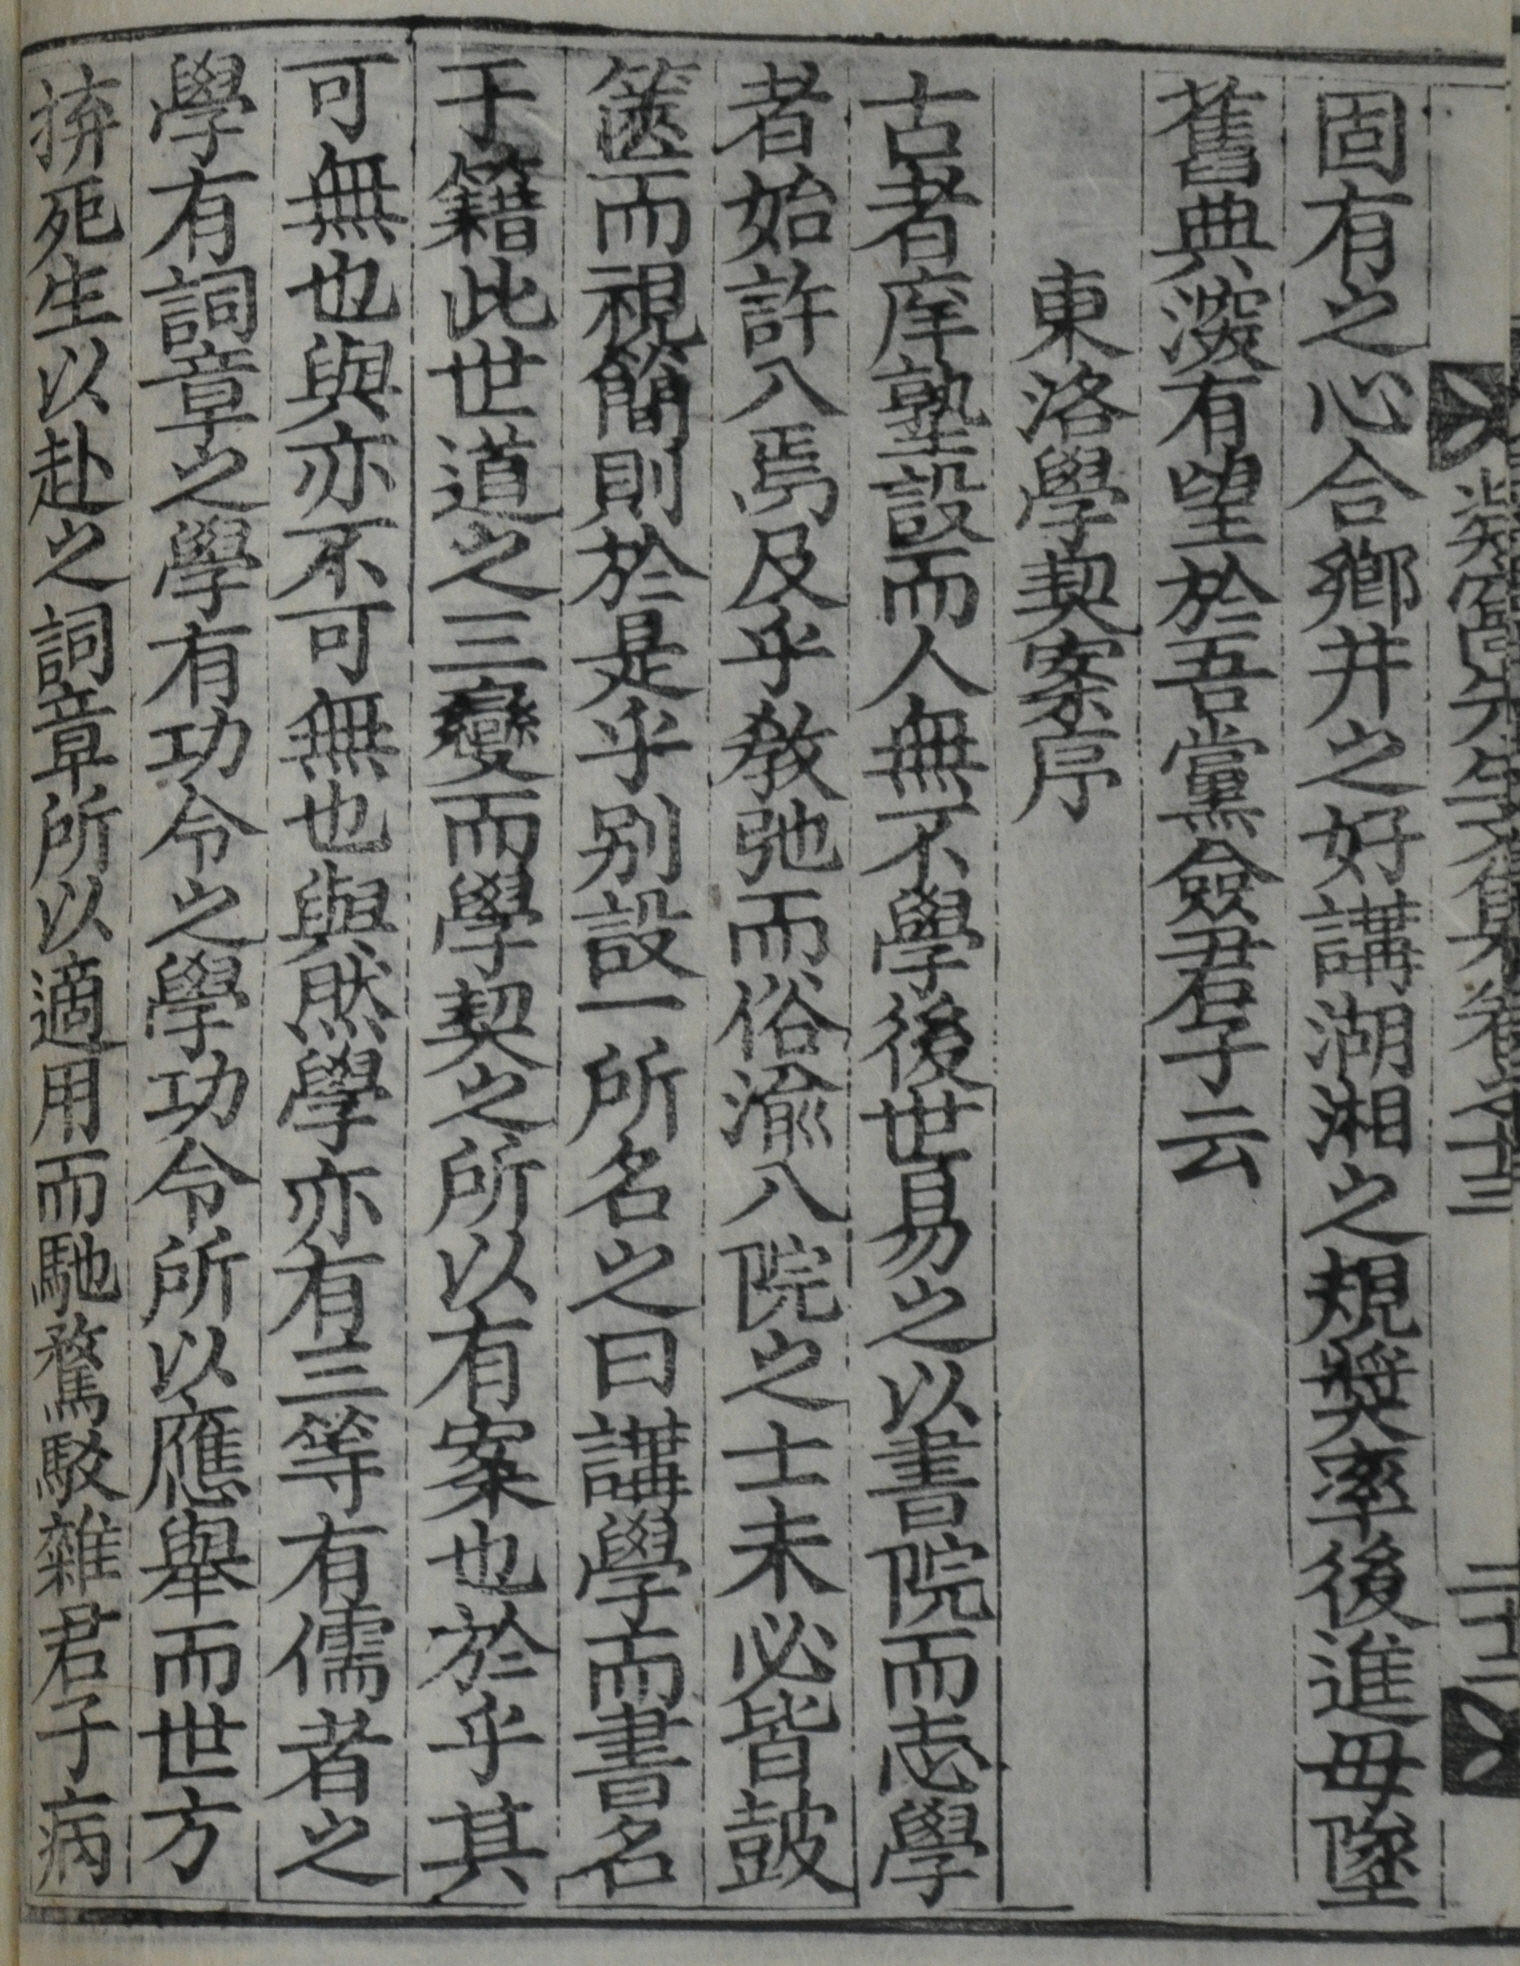 固有之心合鄕井之好講湖湘之規奬率後進毋墜
舊典深有望於吾黨僉君子云
東洛學契案序
古者庠塾設而人無不學後世易之以書院而志學
者始許入焉及乎敎弛而俗渝入院之士未必皆鼓
篋而視簡則於是乎别設一所名之曰講學而書名
于籍此世道之三變而學契之所以有案也於乎其
可無也與亦不可無也與然學亦有三等有儒者之
學有詞章之學有功令之學功令所以應擧而世方
拚死生以赴之詞章所以適用而馳騖駁雜君子病
先生文集卷之十三
二十二